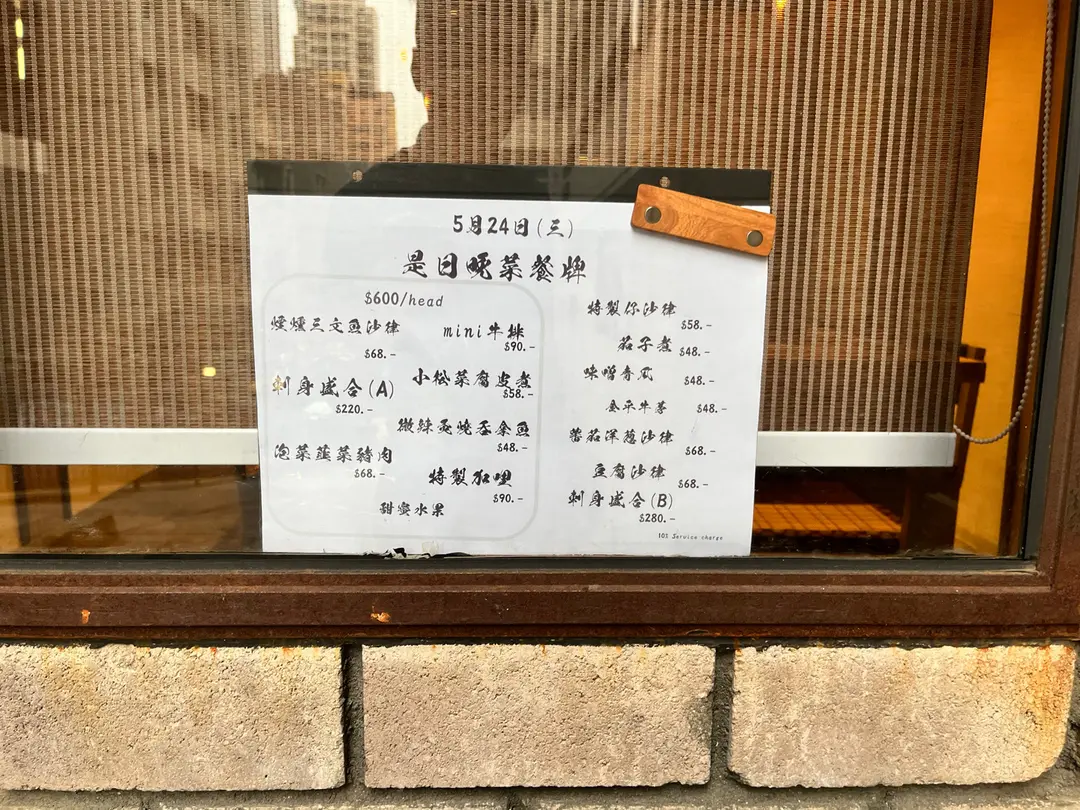 5月24日(三)
是日晚菜餐牌
$600/head
煙燻三文魚沙律
$68.-
mini牛排
$90.-
刺身盛合(A)
$220.-
小松菜腐皮煮
$58.-
微辣汁燒季魚
$48.-
泡菜韮菜豬肉
$68.-
特製咖喱
$90.-
甜蜜水果
特製你沙律
$58.-
茄子煮
$48.-
味噌青瓜
$48.-
金平牛蒡
$48.-
蕃茄洋葱沙律
$68.-
豆腐沙律
$68.-
刺身盛合(B)
$280.-
10% Service charge